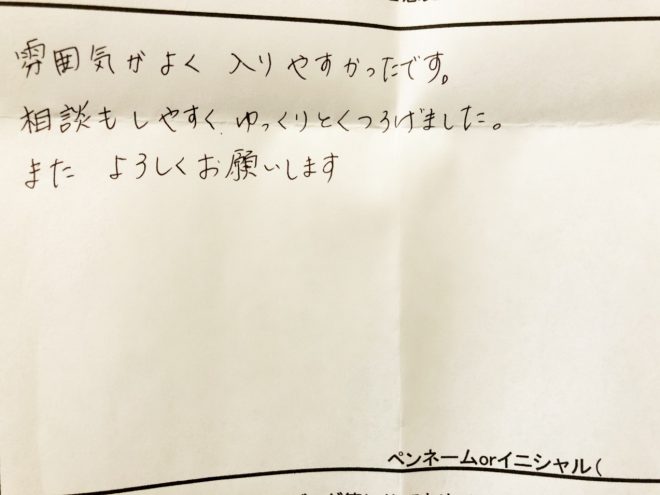 雰囲気がよく 入りやすかったです。
相談もしやすく、ゆっくりとくつろげました。
また よろしくお願いします
ペンネームorイニシャル(